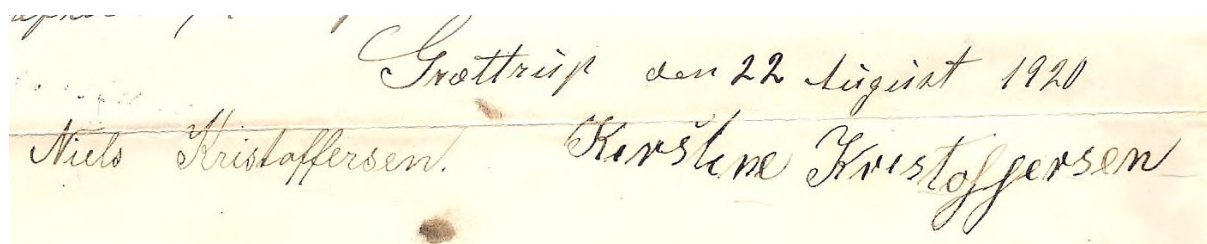 Grættrup den 22 August 1920
Niels Kristoffersen. Kirstine Kristoffersen